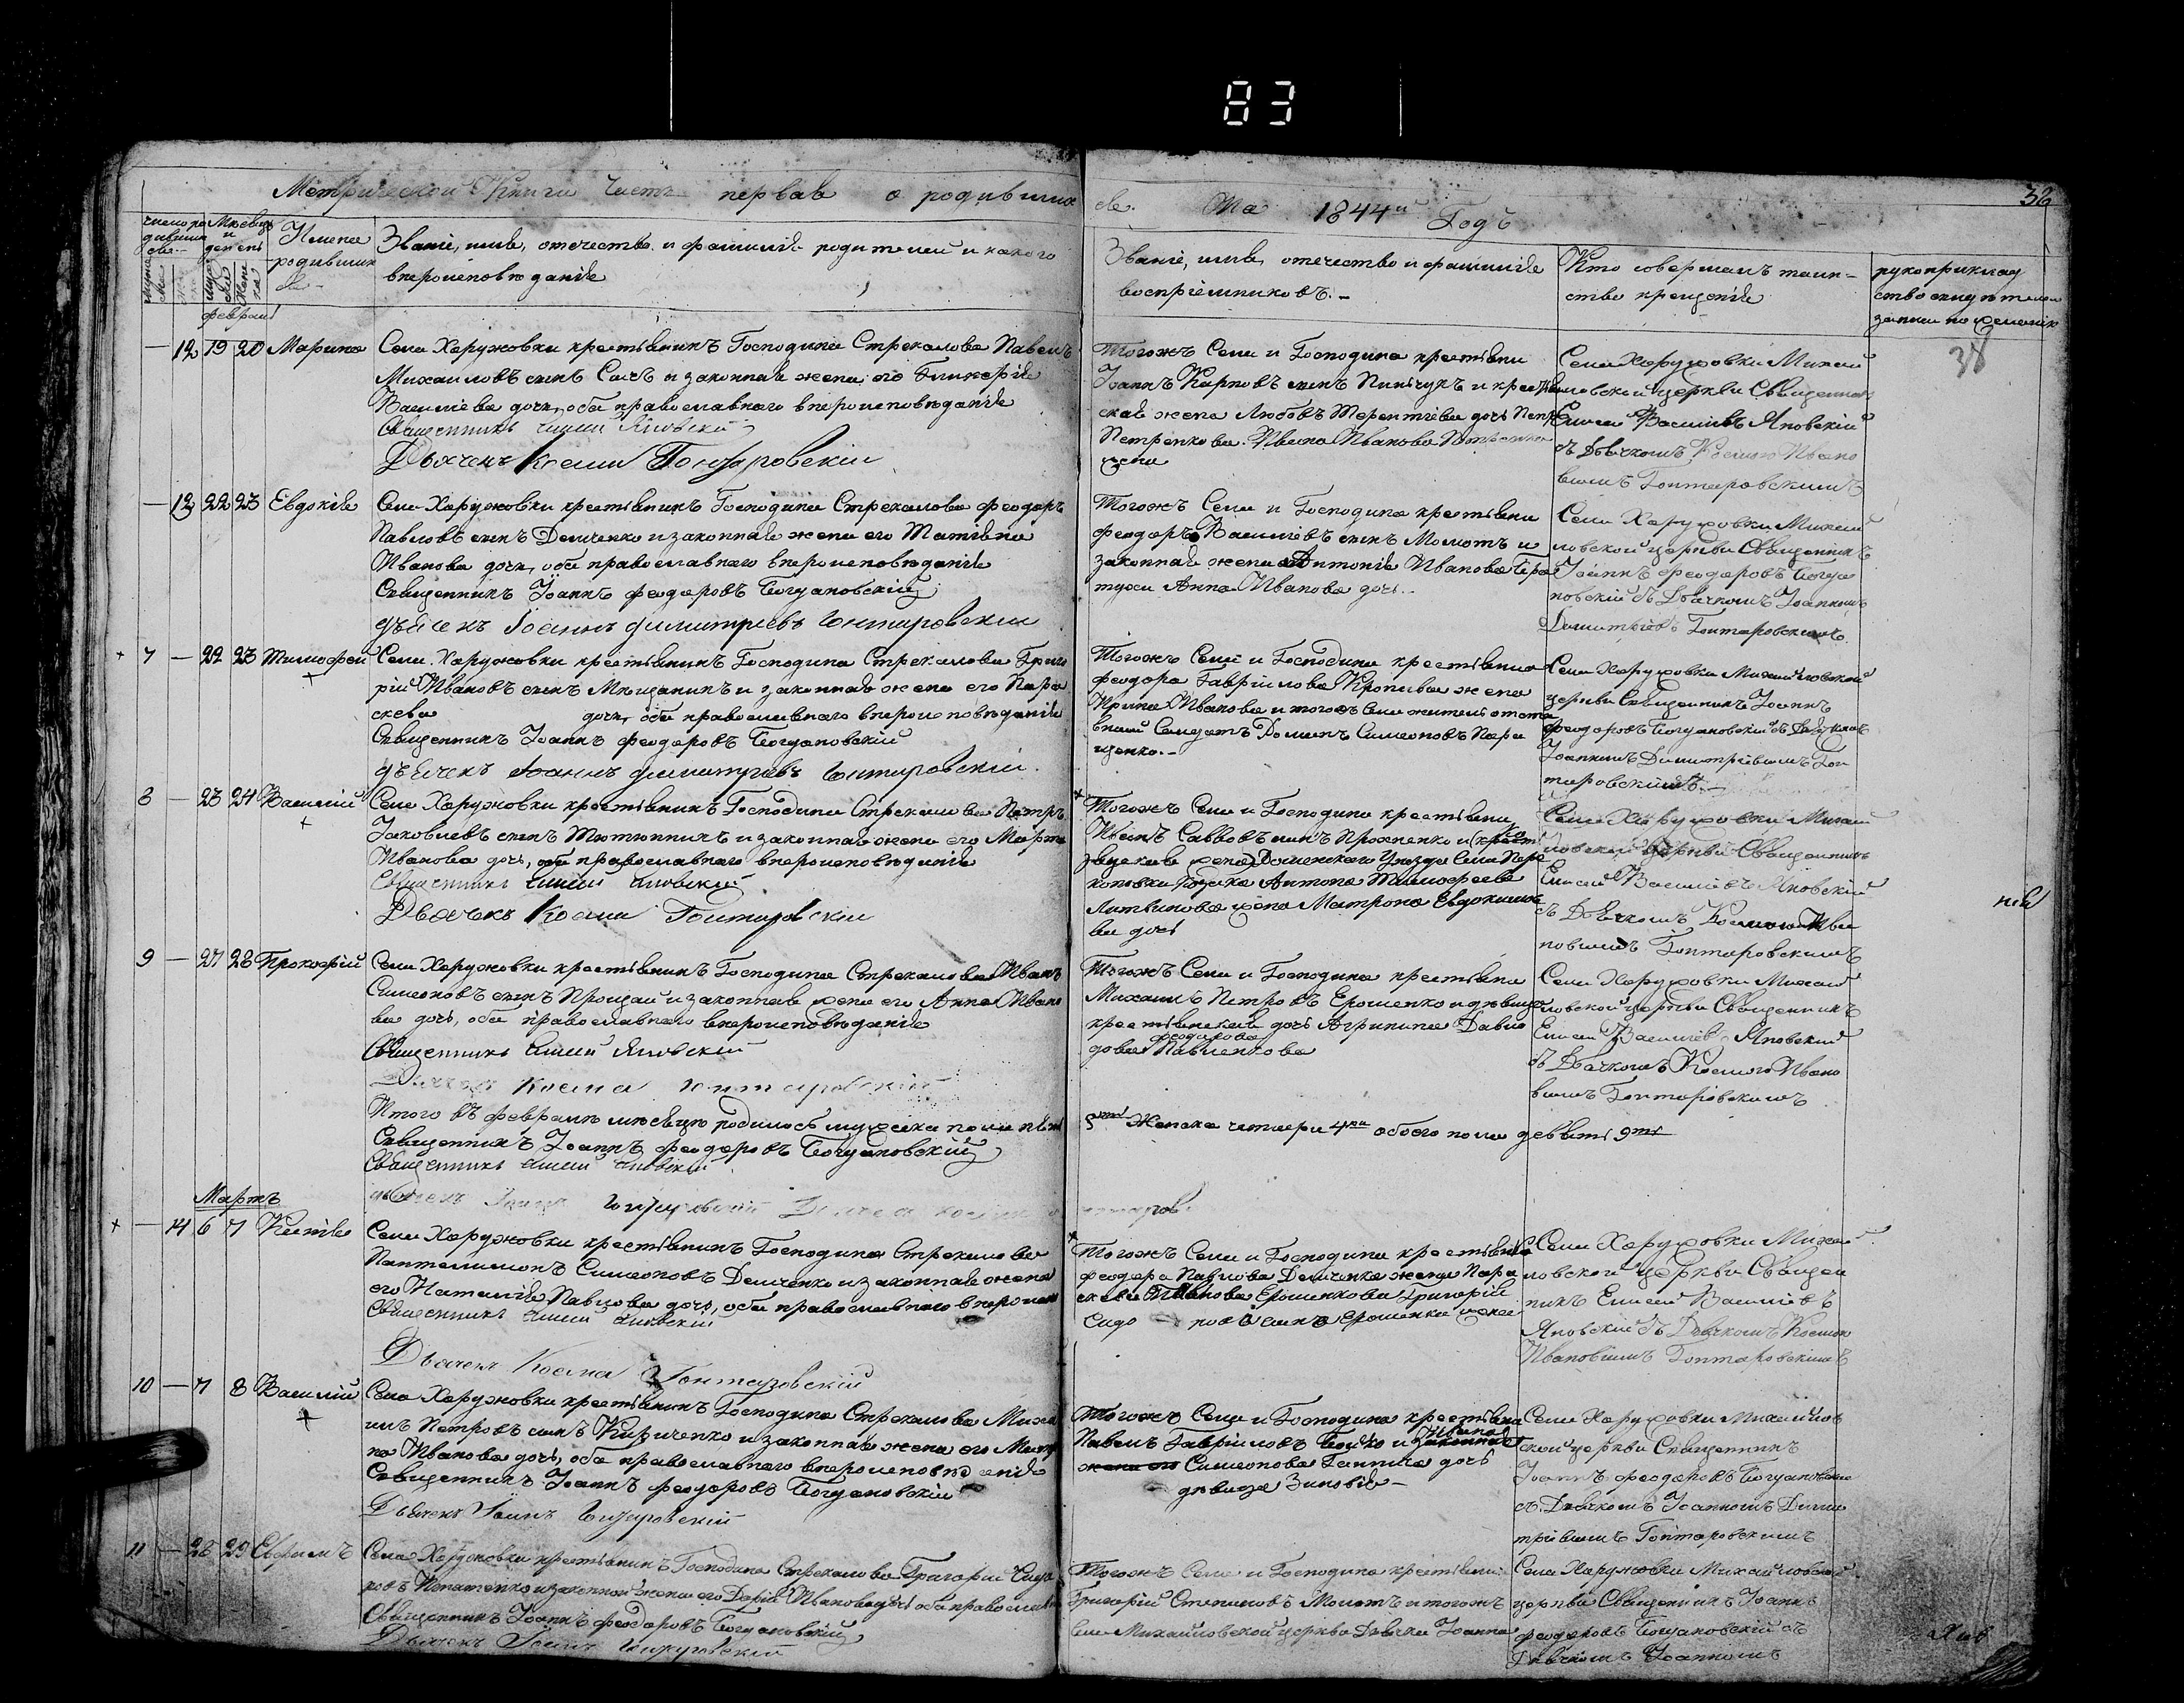 83
Метрической Книги часть первая о родивших
ся. На 1844й Годъ
32
число ро
дивших
ся
Месяцъ
и
день
Имена
родивших
ся
Званіе, имя, отечество и фамилія родителей и какого
вѣроисповѣданія
Званіе, имя, отечество и фамилія
воспріемниковъ.
Кто совершалъ таин-
ство крещенія
рукоприклад
ство свидѣтелей
записи по желанію
38
февраль
— 12 19 20 Марина
Села Харужовки крестьянинъ Господина Стрекалова Павелъ
Михаиловъ сынъ Сачъ и законная жена его Гликерія
Василіева дочь, оба православнаго вѣроисповѣданія
Священникъ Елисей Яновскій
Дьячекъ Косма Гонтаровскій
Тогожъ Села и Господина крестьяни
Іоаннъ Карповъ сынъ Пинчукъ и крестьян
ская жена Любовъ Терентіева дочь
Петренкова. Ивана Иванова Петренка
жена
Села Харужовки Михай
ловской церкви Священникъ
Елисей Василіевъ Яновскій
съ Дьячкомъ Космою Ивано
вымъ Гонтаровскимъ
— 13 22 23 Евдокія
Села Харужовки крестьянинъ Господина Стрекалова феодоръ
Павловъ сынъ Демченко и законная жена его Татіана
Иванова дочь, оба православнаго вѣроисповѣданія
Священникъ Іоаннъ феодоровъ Богдановскій
дьячекъ Іоаннъ димитріевъ Гонтаровскій
Тогожъ Села и Господина крестьяни
феодоръ Василіевъ сынъ Момотъ и
законная жена Антонія Иванова
Анна Иванова дочь.
Села Харужовки Михай
ловской церкви Священникъ
Іоаннъ феодоровъ Богда
новскій съ Дьячкомъ Іоанномъ
Димитріевъ Гонтаровскимъ.
+ 7 — 22 23 Тимофей
+
Села Харужовки крестьянинъ Господина Стрекалова Григо
рій Ивановъ сынъ Мещанинъ и законная жена его Пара
скева дочь, оба православнаго вѣроисповѣданія
Священникъ Іоаннъ феодоровъ Богдановскій
дьячекъ Іоаннъ димитріевъ Гонтаровскій.
Тогожъ Села и Господина крестьянина
феодора Гавріилова Кропивы жена
Ирина Иванова и тогожъ Села житель отста
вный Солдатъ Симеоновъ
щенко.
Села Харужовки Михайловской
церкви Священникъ Іоаннъ
феодоровъ Богдановскій съ Дьячкомъ
Іоанномъ Димитріевымъ Гон
таровскимъ.
8 — 23 24 Василій
+
Села Харужовки крестьянинъ Господина Стрекалова Петръ
Іаковлевъ сынъ Тютюнникъ и законная жена его Марѳа
Иванова дочь, оба православнаго вѣроисповѣданія
Священникъ Елисей Яновскій
Дьячекъ Косма Гонтаровскій
+
Тогожъ Села и Господина крестьяни
Иванъ Саввовъ сынъ Проненко и
жена Роменскаго Уезда Села Пере
коповки Антона Тимофеева
Литвинова жена Матрона Евдокимо
ва дочь
Села Харужовки Михай
ловской церкви Священникъ
Елисей Василіевъ Яновскій
съ Дьячкомъ Космою Ива
новымъ Гонтаровскимъ
нія
9 — 27 28 Прокофій
Села Харужовки крестьянинъ Господина Стрекалова Иванъ
Симеоновъ сынъ Прощай и законная жена его Анна Ивано
ва дочь, оба православнаго вѣроисповѣданія
Священникъ Елисей Яновскій
Дьячекъ Косма Гонтаровскій
Тогожъ Села и Господина крестьяни
Михаилъ Петровъ Ерошенко и дѣвица
крестьянская дочь Агрипина Давы
феодорова
дова Павленкова
Села Харужовки Михай
ловской церкви Священникъ
Елисей Василіевъ Яновскій
съ Дьячкомъ Космою Ивано
вымъ Гонтаровскимъ
Итого въ февралѣ мѣсяцѣ родилось мужеска пола пять
5ть Женска четыри 4ри обоего пола девять 9ть
Священникъ Іоаннъ феодоровъ Богдановскій
Священникъ Елисей Яновскій
дьячекъ Іоаннъ Гонтаровскій Дьячекъ Косма Гонтаров
Мартъ
+ — 14 6 7
Села Харужовки крестьянинъ Господина Стрекалова
Пантелимонъ Симеоновъ Демченко и законная жена
его Наталія Павлова дочь, оба православнаго вѣроиспо
Священникъ Елисей Яновскій
Дьячекъ Косма Гонтаровскій
+
Тогожъ Села и Господина крестьянина
феодора Павлова Демченка жена Пара
скева Иванова Ерошенкова Григорій
Сидо ровъ сынъ Ерошенко
Села Харужовки Михай
ловской церкви Священ
никъ Елисей Василіевъ
Яновскій съ Дьячкомъ Космою
Ивановымъ Гонтаровскимъ
10 — 7 8 Василій
+
Села Харужовки крестьянинъ Господина Стрекалова Миха
илъ Петровъ сынъ Кириченко и законная жена его Матро
на Иванова дочь, оба православнаго вѣроисповѣданія
Священникъ Іоаннъ феодоровъ Богдановскій
Дьячекъ Іоаннъ Гонтаровскій
Тогожъ Села и Господина крестьяни
Павелъ Гавріиловъ Бойко и законная
жена его Симеонова дочь
дѣвица Зиновія —
Села Харужовки Михайлов
ской церкви Священникъ
Іоаннъ феодоровъ Богдановскій
съ Дьячкомъ Іоанномъ Дими
тріевымъ Гонтаровскимъ
11 — 28 29 Евфимъ
Села Харужовки крестьянинъ Господина Стрекалова Григорій Сидо
ровъ Игнатенко и законная жена его Дарія Иванова дочь оба православн
Священникъ Іоаннъ феодоровъ Богдановскій
Дьячекъ Іоаннъ Гонтаровскій
Тогожъ Села и Господина крестьяни
Григорій Стефановъ Момотъ и тогожъ
Села Михайловской церкви Дьячка Іоанна
Села Харужовки Михайловской
церкви Священникъ Іоаннъ
феодоровъ Богдановскій съ
Дьячкомъ Іоанномъ